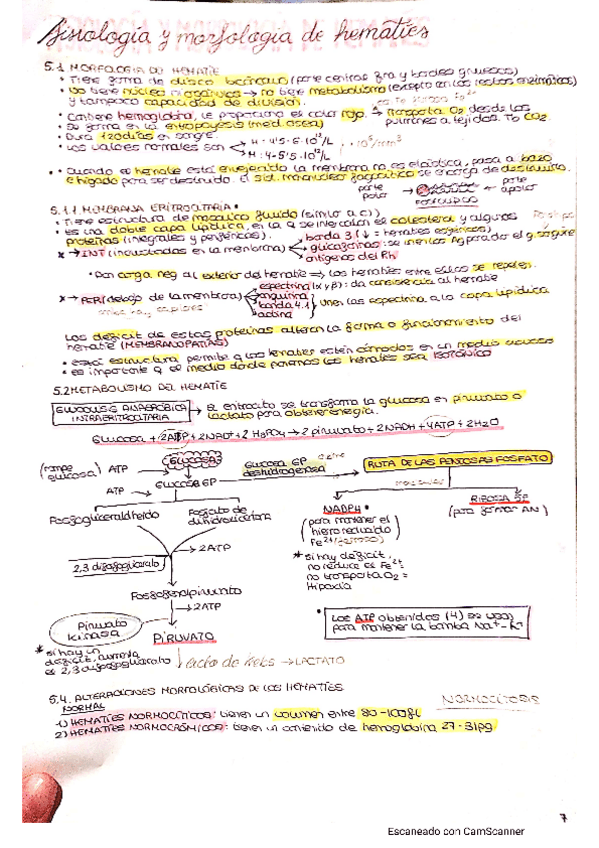 Fisiología y morfología de hematíes
5.1 MORFOLOGIA DEL HEMATIE
• Tiene forma de disco bicóncavo (parte central fina y bordes gruesos)
• No tiene núcleo ni orgánulos → no tiene metabolismo (excepto en los restos enzimáticos)
y tampoco capacidad de división.
• Contiene hemoglobina, le proporciona el color rojo → Transporta O2 desde los
pulmones a tejidos. Tb CO2.
• Se forma en la eritropoyesis (med. ósea)
• Dura 120 días en sangre.
• Los valores normales son
H: 4'5-5·10¹²/L
• Cuando el hematie está envejecido la membrana no es elástica, pasa a bazo
e higado para ser destruido. El sist. mononuclear fagocitico se encarga de destruirlo.
parte polar
parte apolar
FOSFOLIPIDO
5.1.1 MEMBRANA ERITROCITARIA
• Tiene estructura de mosaico fluido (similar a
• Es una doble capa lipídica, en la q se intercalan el colesterol y algunos
proteinas (integrales y periféricas).
x → INT (incrustadas en la membrana)
banda 3 (↓ = hematies esféricos)
glucoforinas: se
el g. sangre
antígenos del Rh
• Dan carga neg al exterior del hematie → los hematies entre ellos se repelen.
x → PERI (debajo de la membrana)
espectrina (α y β): da consistencia al hematie
anquirina
banda 4.1
actina
Unen las espectrina a la capa lipídica
Los déficit de estas proteinas alteran la forma o funcionamiento del
hematie (MEMBRANOPATIAS)
• Esta estructura permite q los hematies estén cómodos en un medio acuoso
• Es importante q el medio donde pongamos los hematies sea ISOTÓNICO
5.2 METABOLISMO DEL HEMATIE
GLUCOLISIS ANAEROBICA
INTRAERITROCITARIA
→ El eritrocito se transforma la glucosa en piruvato o
lactato para obtener energía.
Glucosa + 2ADP + 2NAD+ + 2 H3PO4 → 2 piruvato + 2NADH + 4ATP + 2H2O
(rompe glucosa)
ATP
GLUCOSA
ATP
GLUCOSA 6P
Glucosa 6P
deshidrogenasa
RUTA DE LAS PENTOSAS FOSFATO
Fosfogliceraldheido
Fosfato de
dihidroxicetona
NADPH
(para mantener el
hierro reducido
Fe2+
RIBOSA 5P
(para formar AN)
→ 2ATP
2,3 difosfoglicerato
* si hay déficit,
no reduce el Fe2+
no transporta O2 =
Hipoxia
Fosfoenolpiruvato
→ 2ATP
Piruvato
kinasa
PIRUVATO
• Los ATP obtenidos (4) se usan
para mantener la bomba Na+-K+
* si hay un
déficit, aumenta
el 2,3 difosfoglicerato
ciclo de krebs → LACTATO
5.4. ALTERACIONES MORFOLÓGICAS DE LOS HEMATIES
NORMAL
NORMOCITOSIS
1) HEMATIES NORMOCÍTICOS: tienen un volumen entre 80-100fl
2) HEMATIES NORMOCRÓMICOS: tienen un contenido de hemoglobina 27-31pg.
7
Escaneado con CamScanner